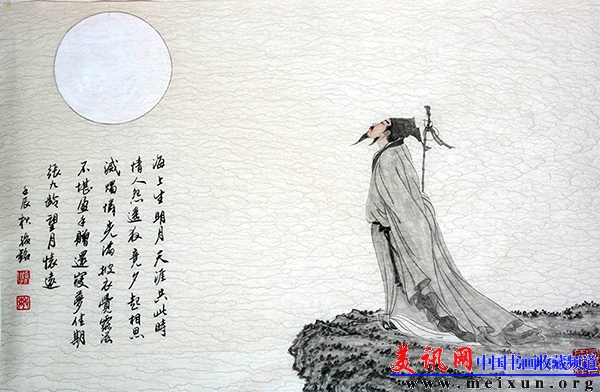 海上生明月天涯共此時
情人怨遙夜竟夕起相思
滅燭憐光滿披衣覺露滋
不堪盈手贈還寢夢佳期
張九齡望月懷遠
壬辰秋
美讯网 中国书画收藏频道
www.meixun.org